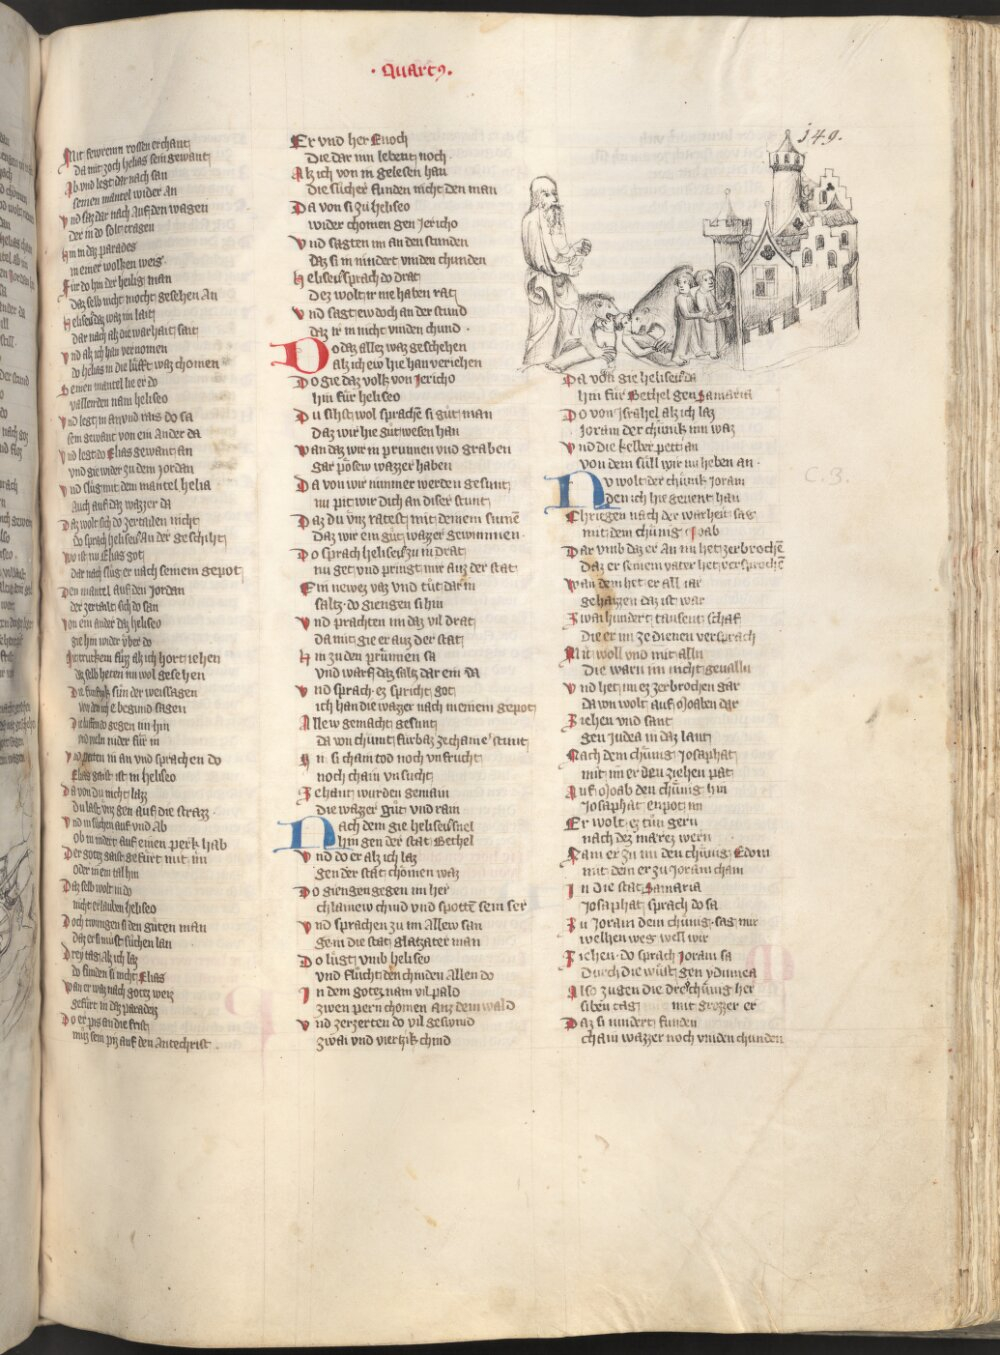 · Quart9 ·
149.
Mit fewrenn rossen erchant
Da mit zoch helias sein gewant
Ab vnd legt dar nach san
seinen mantel wider an
Vnd saz dar nach Auf den wagen
der in do solt tragen
Hin in daz parades
in einer wolken weis
Für do hin der heilig man
Daz selb nicht mocht gesehen An
Heliseus daz waz im lait
Dar nach als die warhait sait
Vnd als ich han vernomen
do helias in die lüfft waz chomen
Seinen mantel lie er do
vallen den nam heliseo
Vnd legt in an vnd rais do sa
sein gewant von ein ander da
Vnd legt do Elias gewant an
vnd gie wider zu dem Jordan
Vnd slug mit dem mantel helia
Auch auf daz wazzer da
Daz wolt sich do zertailen nicht
do sprach heliseus An der geschiht
Wo ist nu Elias got
dar nach slug er nach seinem gepot
Den mantel auf den Jordan
der zertailt sich do san
Von ein ander daz heliseo
gie hin wider vber do
In truckem füzz als ich hort iehen
daz selb heten im wol gesehen
Die sün der weissagen
e begund sagen
gegen im hin
vnd nider für in
Vnd peten in an vnd sprachen do
Elias gaist ist in heliseo
Da von du nicht lazz
Du last vnz gen auf die strazz
Vnd in suchen auf vnd Ab
Ob in indert auf einen perk hab
Der gotz gaist gefürt mit im
Oder in ein tal hin
Daz selb wolt in do
nicht erlauben heliseo
Doch twungen si den güten man
daz er si müst süchen lan
Drey tag als ich laz
do funden si nicht Elias
Wan er waz nach gotez weiz
gefürt in daz paradeiz
Do er pis an die frist
müz sein piz auf den Antechrist.
Er vnd her Enoch
Die dar inn lebent noch.
Alz ich von in gelesen han
Die sücher funden nicht den man
Da von si zu heliseo
wider chomen gen Jericho
Vnd sagten im an den stunden
daz si in nindert vinden chunden
Heliseus sprach do drat
Dez wolt ir nie haben rat
Vnd sagt ew doch an der stund
daz ir in nicht vinden chund.
Do daz allez waz geschehen
Alz ich ew hie han veriehen
Do gie daz volk von Jericho
hin für heliseo
Du sihst wol sprachē si güt man
Daz wir hie güt wesen han
Wan daz wir in prunnen vnd graben
gar pösew wazzer haben
Da von wir nimmer werden gesunt
nu pit wir dich an diser stunt
Daz du vnz ratest mit deinem sinnē
Daz wir ein güt wazzer gewinnen.
Do sprach heliseus zu in drat
nu get vnd pringt mir auz der stat
Ein newez vaz vnd tüt dar in
saltz. do giengen si hin
Vnd prachten im daz vil drat
da mit gie er auz der stat
Hin zu den prünnen sa
vnd warf daz saltz dar ein da
Vnd sprach. ez spricht got
ich han die wazzer nach meinem gepot
Allew gemacht gesunt
da von chümt fürbaz ze chainer stunt
In si chain tod noch vnfrucht
noch chain vnsucht
Zehant wurden gemain
die wazzer güt vnd rain
Nach dem gie heliseus snel
hin gen der stat Bethel
Vnd do er alz ich laz
gen der stat chomen waz
Do giengen gegen im her
chlainew chind vnd spottē sein ser
Vnd sprachen zu im Allew san
gein die stat glatzater man
Do lügt vmb heliseo
vnd flücht den chinden Allen do
In dem gotez nam vil pald
zwen pern chomen auz dem wald
Vnd zerzerten do vil geswind
zwai vnd viertzik chind
Da von gie heliseus da
hin für Bethel gen Samaria
Do von Jsrahel alz ich laz
Joram der chünik inn waz
Vnd die kelber pett an
von dem süll wir nu heben an.
Nv wolt der chünik Joram
den ich hie genent han
Chriegen nach der warheit sag
mit dem chünig Moab
Dar vmb daz er An im het zerbrochē
Daz er seinem vater het versprochē
Wan dem het er all iar
gehaizen daz ist war
Zwaihundert tausent schaf
Die er im ze dienen versprach
Mit woll vnd mit alln
Die warn im nicht geualln
Vnd het im ez zerbrochen gar
da von wolt auf Moaben dar
Ziehen vnd sant
gen Judea in daz lant
Nach dem chünig Josaphat
mit im er den ziehen pat
Auf Moab den chünig hin
Josaphat enpot im
Er wolt ez tün gern
nach dez marez wern
Kam er zu im den chünig Edom
mit dem er zu Joram cham
In die stat Samaria
Josaphat sprach do sa
Zu Joram dem chünig. sag mir
welhen weg well wir
Ziehen. do sprach Joram sa
Durch die wüst gen ydumea
Also zugen die drei chünig her
siben tag mit grozzer er
Daz si nindert funden
chain wazzer noch vinden chunden
C. 3.